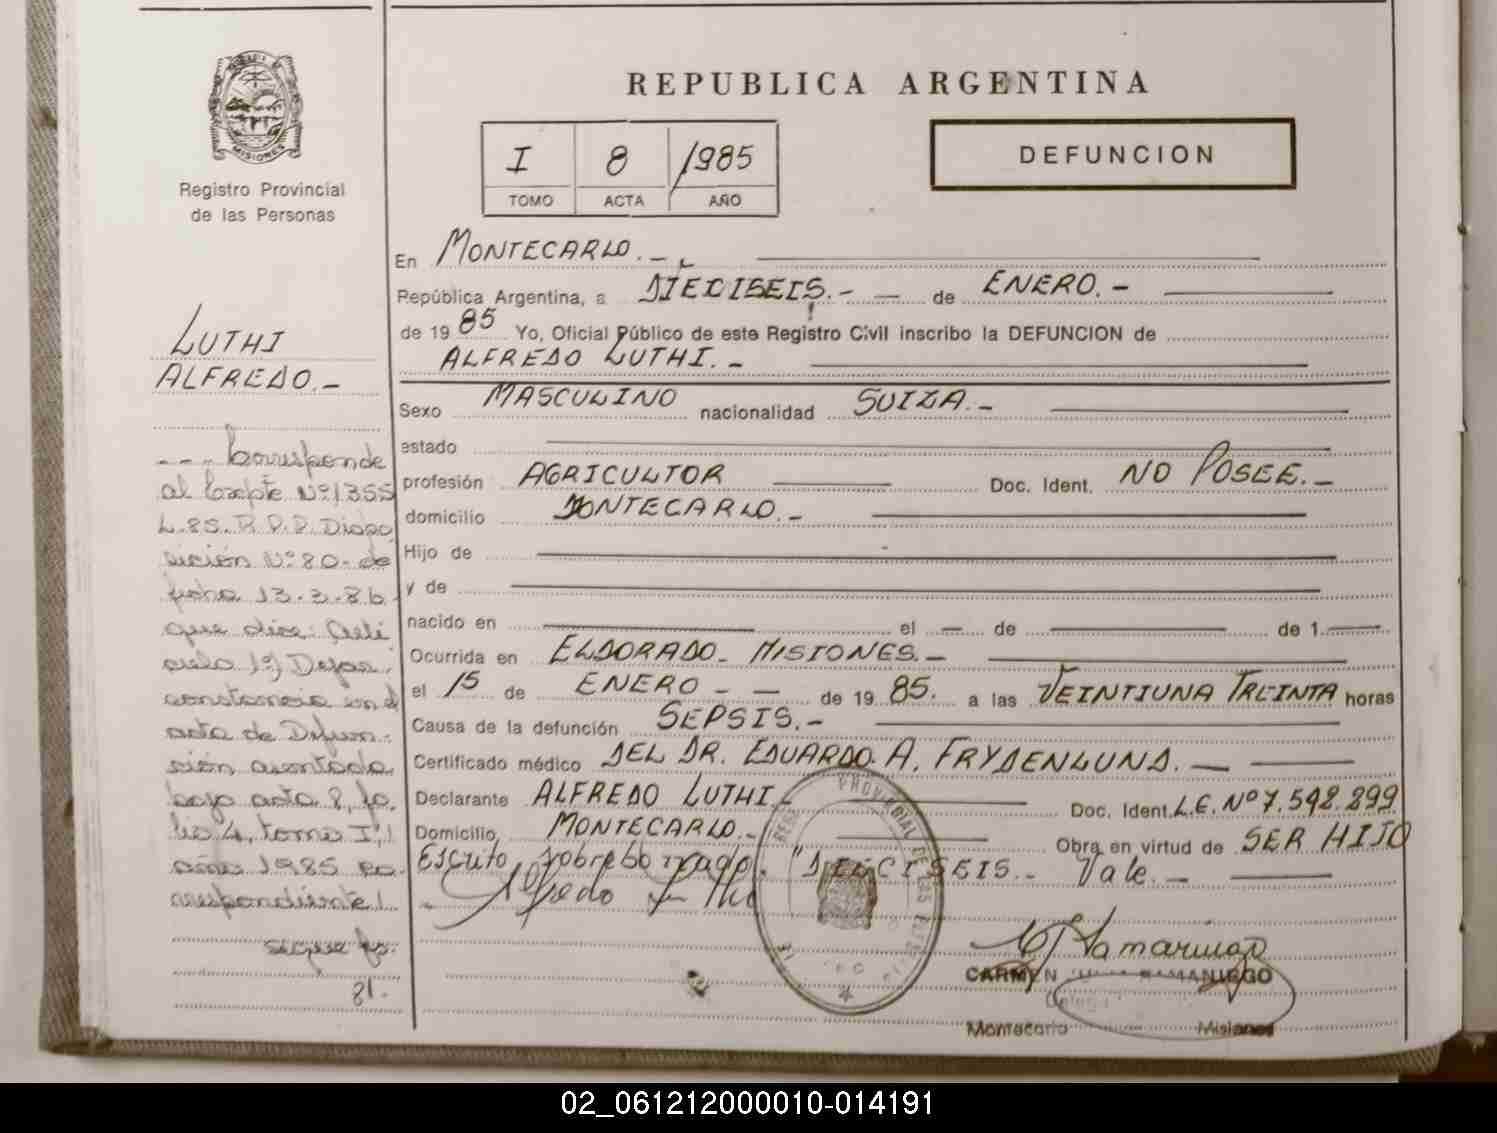 MISIONES
Registro Provincial
de las Personas
LUTHI
ALFREDO.-
--- Corresponde
al Expte Nº1355
L-85. R.P.P. Dispo
sición Nº80- de
fecha 13-3-86
que dice: Artí
culo 1º) Dejar
constancia en el
acta de Defun-
ción asentada
bajo acta 8, fo
lio 4, tomo Iº,
año 1985 co-
rrespondiente
sigue fo.
81.
REPUBLICA ARGENTINA
I 8 1985
TOMO ACTA AÑO
DEFUNCION
En MONTECARLO.-
República Argentina, a DIECISEIS.- — de ENERO.-
de 1985 Yo, Oficial Público de este Registro Civil inscribo la DEFUNCION de
ALFREDO LUTHI.-
Sexo MASCULINO nacionalidad SUIZA.-
estado
profesión AGRICULTOR Doc. Ident. NO POSEE.-
domicilio MONTECARLO.-
Hijo de
y de
nacido en el — de de 1.
Ocurrida en ELDORADO- MISIONES.-
el 15 de ENERO - - de 1985. a las VEINTIUNA TREINTA horas
Causa de la defunción SEPSIS.-
Certificado médico DEL DR. EDUARDO A. FRYDENLUND.-
Declarante ALFREDO LUTHI- Doc. Ident. L.E. Nº7.592.899
Domicilio MONTECARLO.- Obra en virtud de SER HIJO
Escrito sobreborrado: "DIECISEIS.- Vale.-
Alfredo Luthi
PROVINCIAL DE LAS
CARMEN SAMANIEGO
Montecarlo Misiones
02_061212000010-014191